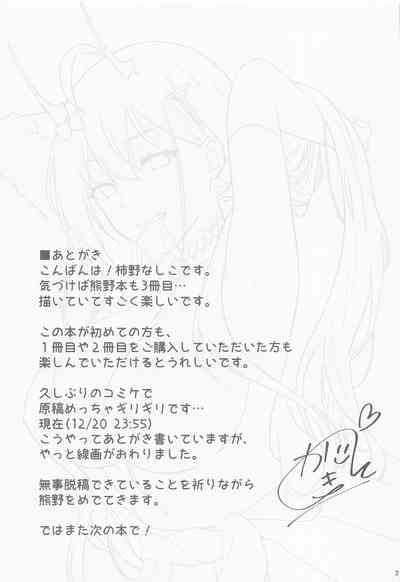 ■あとがき
こんばんは！柿野なしこです。
気づけば熊野本も3冊目…
描いていてすごく楽しいです。
この本が初めての方も、
１冊目や２冊目をご購入していただいた方も
楽しんでいただけるとうれしいです。
久しぶりのコミケで
原稿めっちゃギリギリです…
現在(12/20 23:55)
こうやってあとがき書いていますが、
やっと線画がおわりました。
無事脱稿できていることを祈りながら
熊野をめでてきます。
ではまた次の本で！